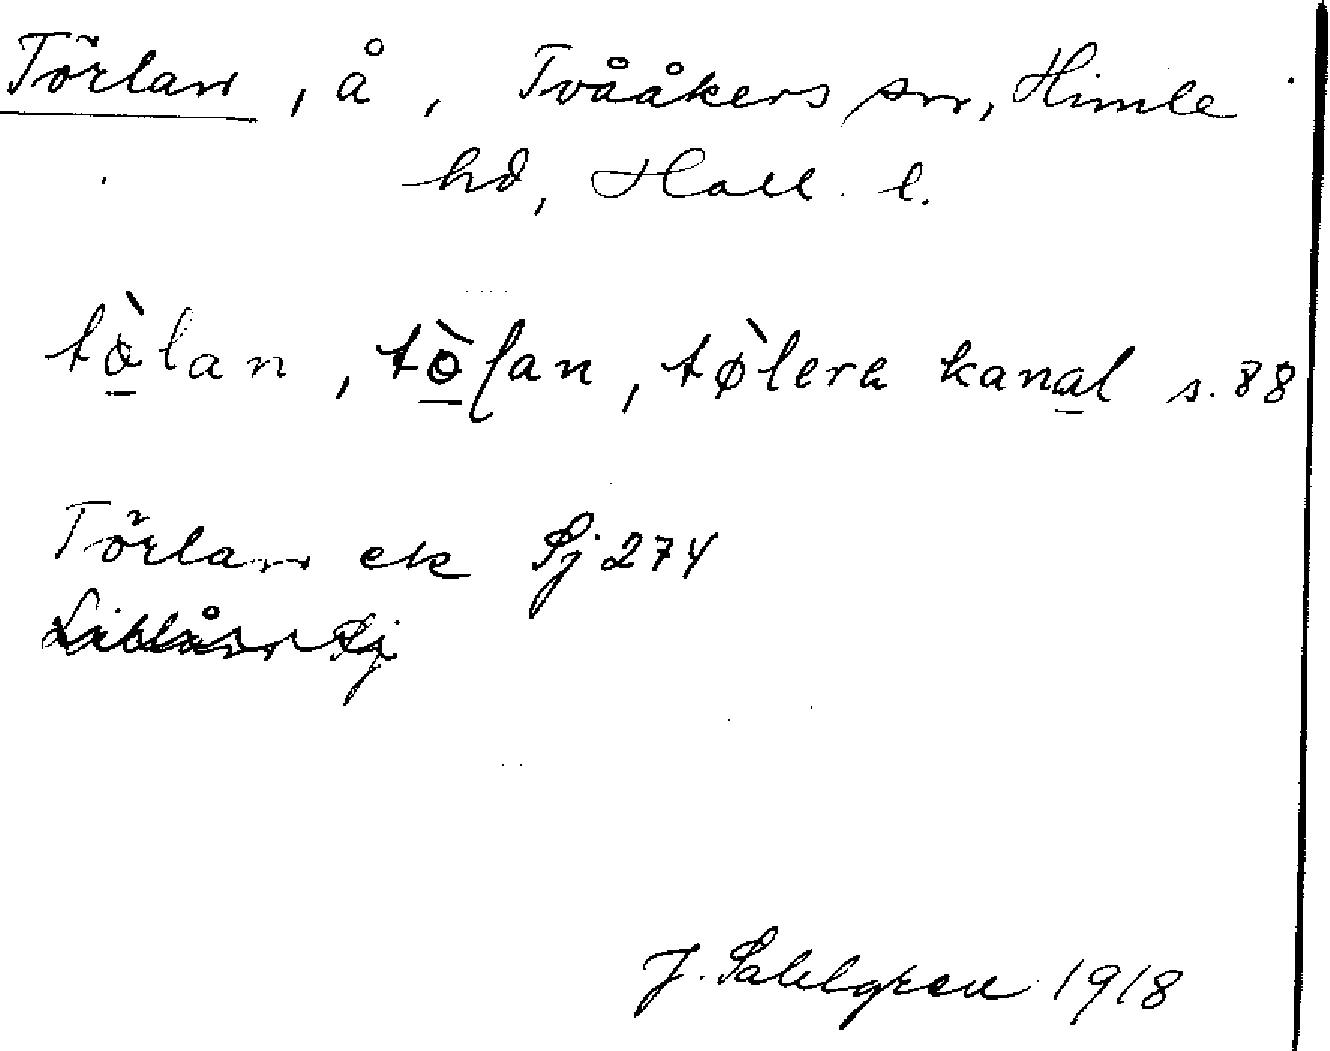 Törlan, å, Tvååkers sn, Himle
hd, Hall. l.
tö̀lan, tö̀lan, tø̀lera kanal s. 88
Törlan ek Sj 274
J. Sahlgren 1918